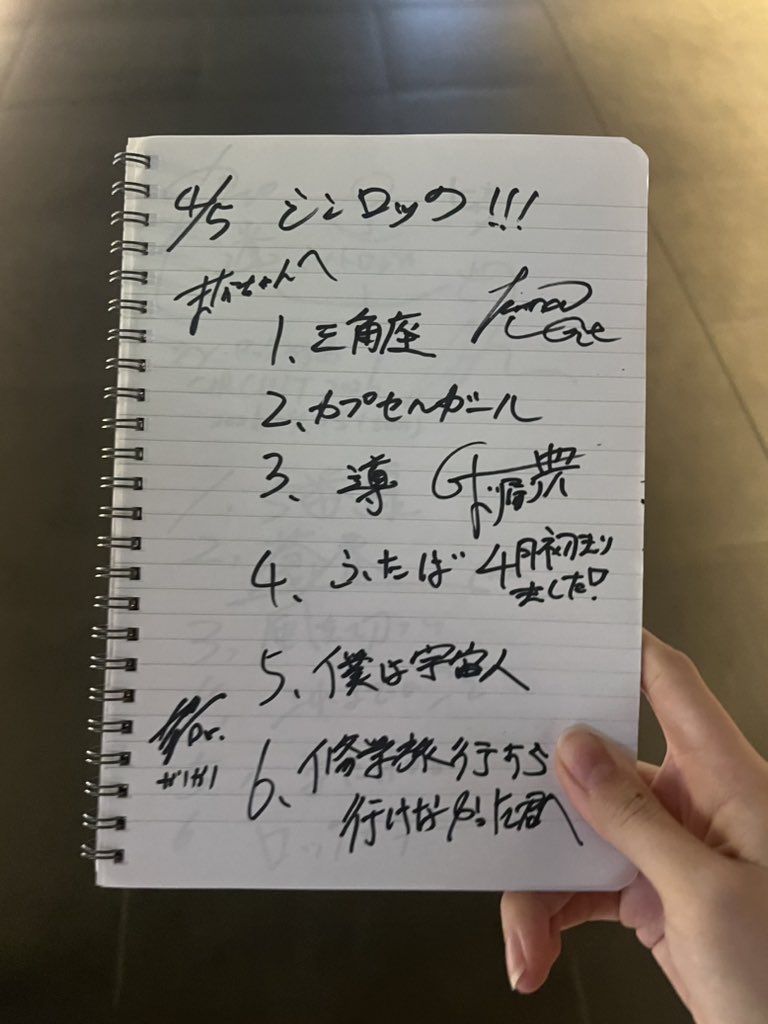 4/5 シンロック!!!
ちゃんへ
1、三角座
2、カプセルガール
3、導
4、ふたば
4月初まり
ました!
5、僕は宇宙人
Dr.
6、修学旅行すら
行けなかった君へ